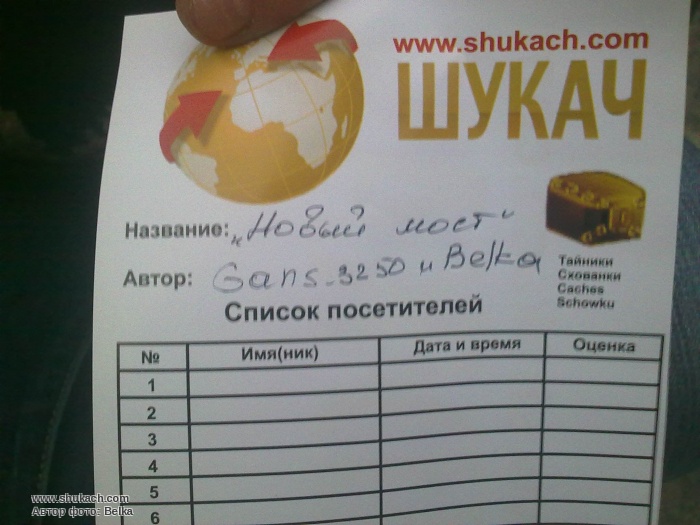 www.shukach.com
ШУКАЧ
Название: „Новый мост"
Автор: Gans_3250 и Belka
Тайники
Схованки
Caches
Schowku
Список посетителей
№ Имя(ник) Дата и время Оценка
1
2
3
4
5
6
www.shukach.com
Автор фото: Belka